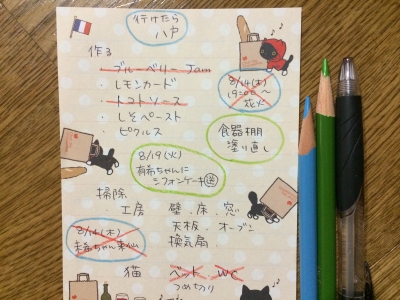 行けたら
ハ戸
作る
・ブルーベリーJam
・レモンカード
・トマトソース
・しそペースト
・ピクルス
8/14(木)
19:00〜
花火
食器棚
塗り直し
8/19(火)
有希ちゃんに
シフォンケーキ送
掃除
・工房 壁、床、窓
天板、オーブン
換気扇
8/14(木)
猫 ベッド WC
つめ切り